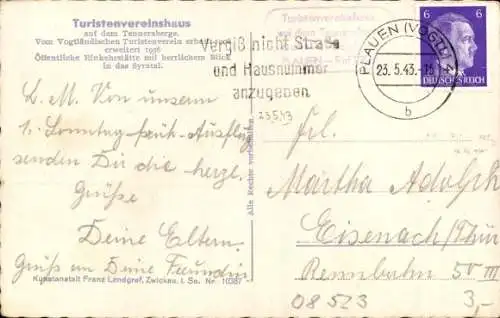 Turistenvereinshaus
auf dem Tennersberge.
Vom Vogtländischen Turistenverein erbaut
erweitert 1926
Öffentliche Einkehrstätte mit herrlichem Blick
in das Syratal.
Turistenvereinshaus
auf dem
PLAUEN
Vergiß nicht Straße
und Hausnummer
anzugeben
PLAUEN (VOGTL) 4
23.5.43.-18
b
6 6
DEUTSCHES REICH
23.5.43
L. M. Von unserm
1. Sonntag-früh-Ausflug
senden Dir die herzl.
Grüße
Deine Eltern.
Gruß an Deine Freundin
Alle Rechte vorbehalten
Frl.
Martha Adolph
Eisenach/Thür.
Rennbahn 50 III
Kunstanstalt Franz Landgraf, Zwickau i. Sa. Nr. 10087
08 523
3,-